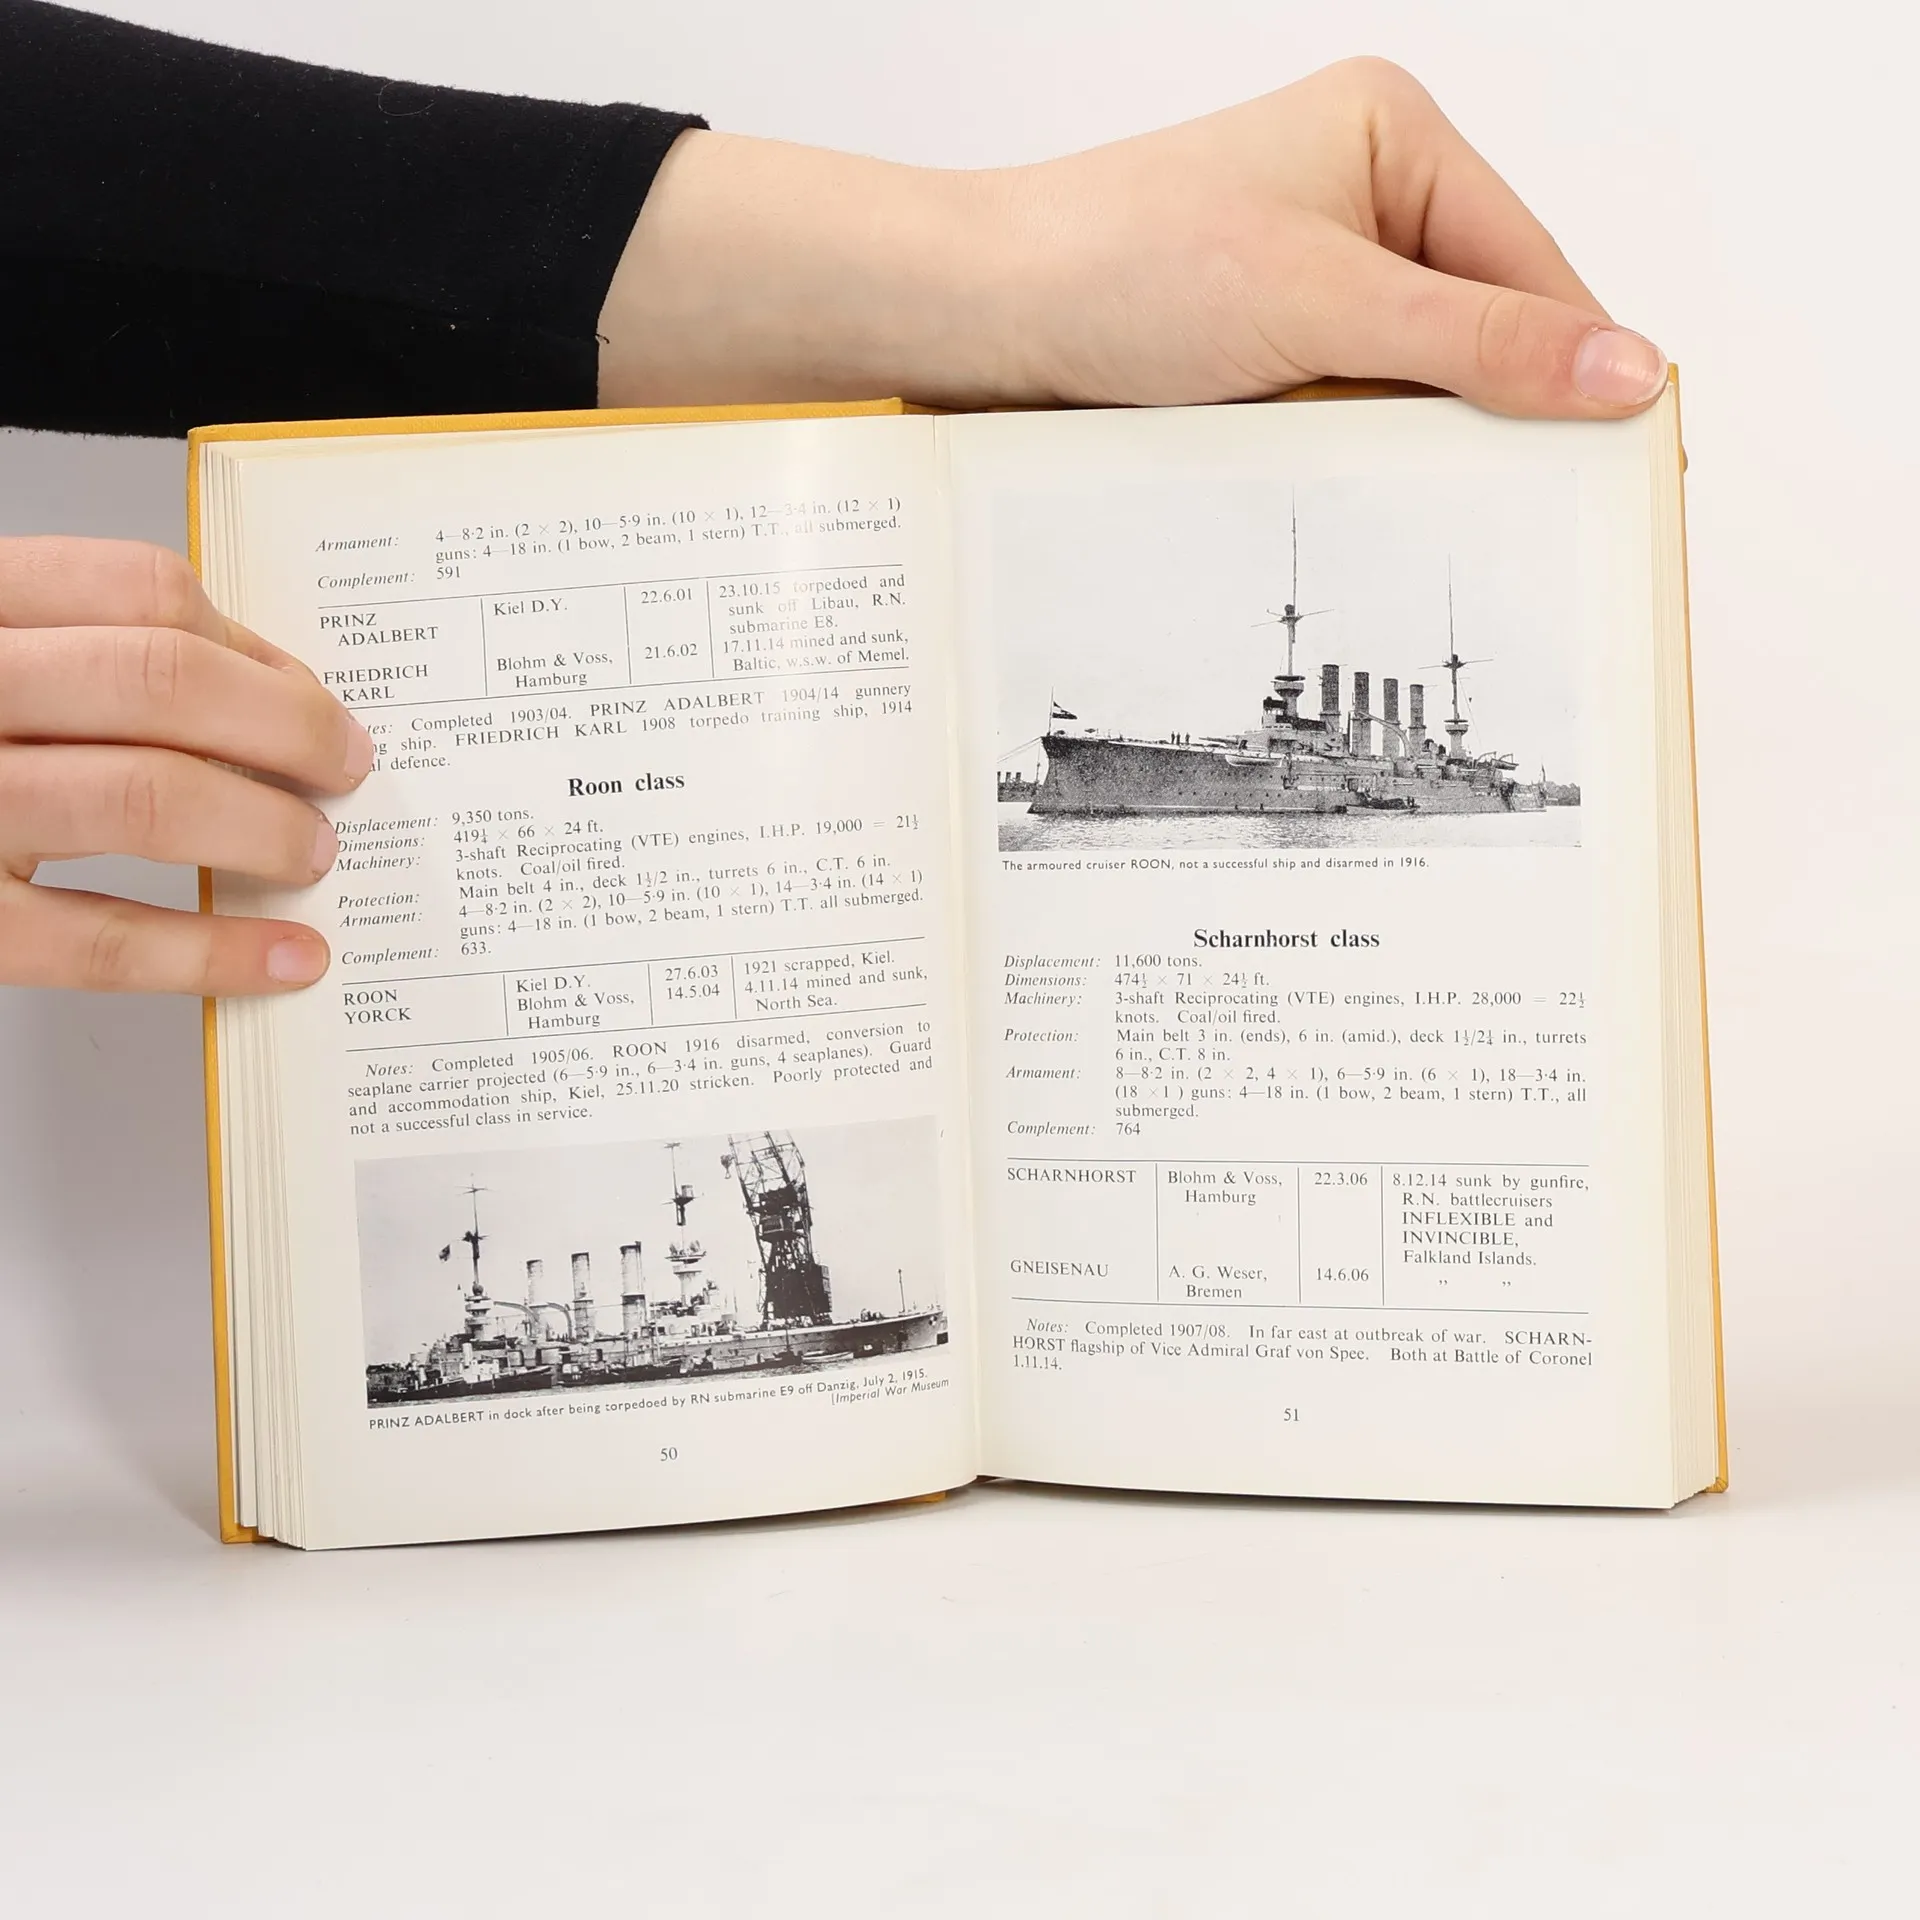 Armament: 4—8·2 in. (2 × 2), 10—5·9 in. (10 × 1), 12—3·4 in. (12 × 1)
guns: 4—18 in. (1 bow, 2 beam, 1 stern) T.T., all submerged.
Complement: 591
PRINZ ADALBERT Kiel D.Y. 22.6.01 23.10.15 torpedoed and
sunk off Libau, R.N.
submarine E8.
FRIEDRICH KARL Blohm & Voss, Hamburg 21.6.02 17.11.14 mined and sunk,
Baltic, w.s.w. of Memel.
Completed 1903/04. PRINZ ADALBERT 1904/14 gunnery
ship. FRIEDRICH KARL 1908 torpedo training ship, 1914
defence.
Roon class
Displacement: 9,350 tons.
Dimensions: 419¼ × 66 × 24 ft.
Machinery: 3-shaft Reciprocating (VTE) engines, I.H.P. 19,000 = 21½
knots. Coal/oil fired.
Protection: Main belt 4 in., deck 1½/2 in., turrets 6 in., C.T. 6 in.
Armament: 4—8·2 in. (2 × 2), 10—5·9 in. (10 × 1), 14—3·4 in. (14 × 1)
guns: 4—18 in. (1 bow, 2 beam, 1 stern) T.T. all submerged.
Complement: 633.
ROON Kiel D.Y. 27.6.03 1921 scrapped, Kiel.
YORCK Blohm & Voss, 14.5.04 4.11.14 mined and sunk,
Hamburg North Sea.
Notes: Completed 1905/06. ROON 1916 disarmed, conversion to
seaplane carrier projected (6—5·9 in., 6—3·4 in. guns, 4 seaplanes). Guard
and accommodation ship, Kiel, 25.11.20 stricken. Poorly protected and
not a successful class in service.
PRINZ ADALBERT in dock after being torpedoed by RN submarine E9 off Danzig, July 2, 1915.
[Imperial War Museum
50
The armoured cruiser ROON, not a successful ship and disarmed in 1916.
Scharnhorst class
Displacement: 11,600 tons.
Dimensions: 474½ × 71 × 24½ ft.
Machinery: 3-shaft Reciprocating (VTE) engines, I.H.P. 28,000 = 22½
knots. Coal/oil fired.
Protection: Main belt 3 in. (ends), 6 in. (amid.), deck 1½/2¼ in., turrets
6 in., C.T. 8 in.
Armament: 8—8·2 in. (2 × 2, 4 × 1), 6—5·9 in. (6 × 1), 18—3·4 in.
(18 ×1 ) guns: 4—18 in. (1 bow, 2 beam, 1 stern) T.T., all
submerged.
Complement: 764
SCHARNHORST Blohm & Voss, 22.3.06 8.12.14 sunk by gunfire,
Hamburg R.N. battlecruisers
INFLEXIBLE and
INVINCIBLE,
Falkland Islands.
GNEISENAU A. G. Weser, 14.6.06 ,, ,,
Bremen
Notes: Completed 1907/08. In far east at outbreak of war. SCHARN-
HORST flagship of Vice Admiral Graf von Spee. Both at Battle of Coronel
1.11.14.
51